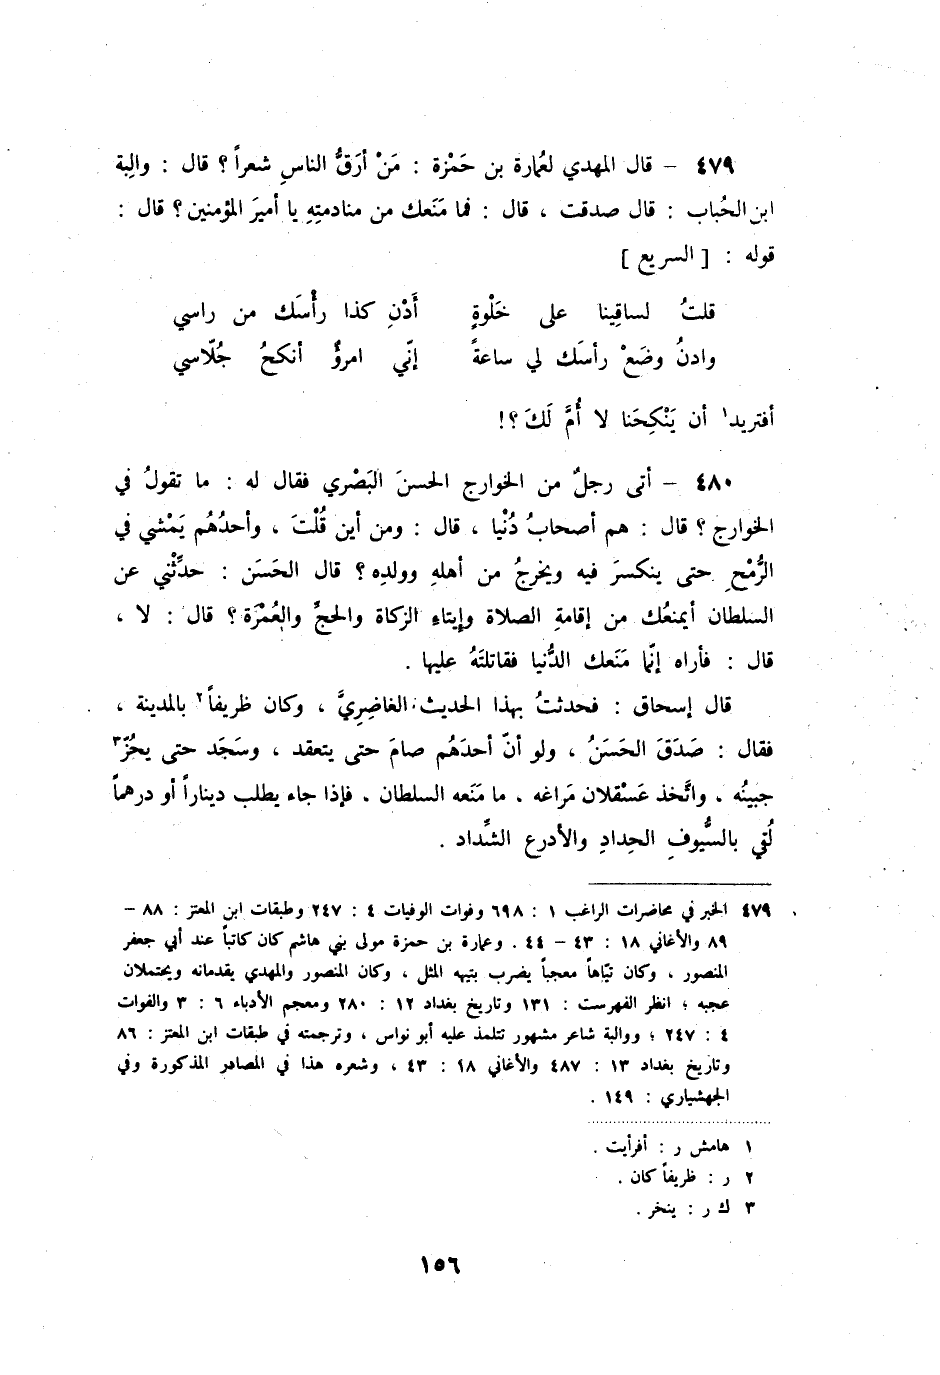 ٤٧٩ – قال المهدي لعُمارة بن حَمْزة : مَنْ أرَقُّ الناسِ شعراً ؟ قال : والِبة
ابن الحُباب : قال صدقت ، قال : فما مَنَعك من منادمتِهِ يا أميرَ المؤمنين ؟ قال :
قوله : [ السريع ]
قلتُ لساقِينا على خَلْوةٍ أَدْنِ كذا رأْسَك من راسي
وادنُ وضَعْ رأسَك لي ساعةً إنّي امرؤٌ أنكحُ جُلّاسي
أفتريد١ أن يَنْكِحَنا لا أُمَّ لَكَ ؟!
٤٨٠ – أتى رجلٌ من الخوارج الحسنَ البَصْري فقال له : ما تقولُ في
الخوارج ؟ قال : هم أصحابُ دُنْيا ، قال : ومن أين قُلْتَ ، وأحدُهُم يَمْشي في
الرُّمْحِ حتى ينكسرَ فيه ويخرجُ من أهلهِ وولدِه ؟ قال الحَسَن : حدِّثْني عن
السلطان أيمنعُك من إقامةِ الصلاة وإيتاءِ الزكاة والحجِّ والعُمْرَة ؟ قال : لا ،
قال : فأراه إنّما مَنَعك الدُّنيا فقاتلتَهُ عليها .
قال إسحاق : فحدثتُ بهذا الحديث الغاضِرِيَّ ، وكان ظريفاً٢ بالمدينة ،
فقال : صَدَقَ الحَسَنُ ، ولو أنّ أحدَهُم صامَ حتى يتعقد ، وسَجَد حتى يحُزّ٣
جبينُه ، واتَّخذ عَسْقلان مَراغه ، ما مَنَعه السلطان ، فإذا جاء يطلب ديناراً أو درهماً
لُقي بالسُّيوفِ الحِدادِ والأدرع الشِّداد .
٤٧٩ الخبر في محاضرات الراغب ١ : ٦٩٨ وفوات الوفيات ٤ : ٢٤٧ وطبقات ابن المعتز : ٨٨ –
٨٩ والأغاني ١٨ : ٤٣ – ٤٤ . وعمارة بن حمزة مولى بني هاشم كان كاتباً عند أبي جعفر
المنصور ، وكان تيّاهاً معجباً يضرب بتيهه المثل ، وكان المنصور والمهدي يقدمانه ويحتملان
عجبه ؛ انظر الفهرست : ١٣١ وتاريخ بغداد ١٢ : ٢٨٠ ومعجم الأدباء ٦ : ٣ والفوات
٤ : ٢٤٧ ؛ ووالبة شاعر مشهور تتلمذ عليه أبو نواس ، وترجمته في طبقات ابن المعتز : ٨٦
وتاريخ بغداد ١٣ : ٤٨٧ والأغاني ١٨ : ٤٣ ، وشعره هذا في المصادر المذكورة وفي
الجهشياري : ١٤٩ .
١ هامش ر : أفرأيت .
٢ ر : ظريفاً كان .
٣ ك ر : ينخر .
١٥٦